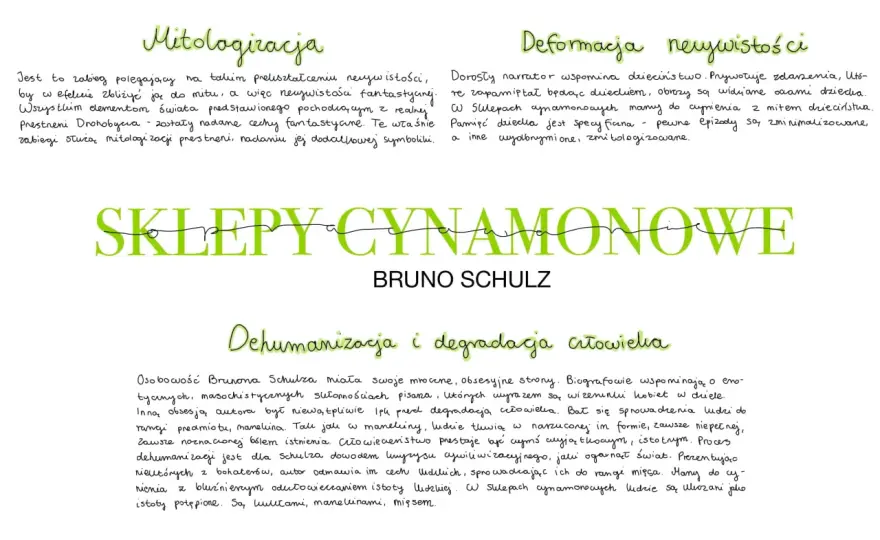 Mitologizacja
Jest to zabieg polegający na takim przekształceniu rzeczywistości,
by w efekcie zbliżyć ją do mitu, a więc rzeczywistości fantastycznej.
Wszystkim elementom świata przedstawionego pochodzącym z realnej
Przestrzeni Drohobycza - zostały nadane cechy fantastyczne. Te właśnie
zabiegi służą mitologizacji przestrzeni, nadaniu jej dodatkowej symboliki.
Deformacja rzeczywistości
Dorosły narrator wspomina dzieciństwo. Przywołuje zdarzenia, któ-
re zapamiętał będąc dzieckiem, obrazy są widziane oczami dziecka.
W Sklepach cynamonowych mamy do czynienia z mitem dzieciństwa.
Pamięć dziecka jest specyficzna - pewne epizody są zminimalizowane,
a inne wyolbrzymione, zmitologizowane.
SKLEPY CYNAMONOWE
opracowanie
BRUNO SCHULZ
Dehumanizacja i degradacja człowieka
Osobowość Brunona Schulza miała swoje mroczne, obsesyjne strony. Biografowie wspominają o ero-
tycznych, masochistycznych skłonnościach pisarza, których wyrazem są wizerunki kobiet w dziele.
Inną obsesją autora był niewątpliwie lęk przed degradacją człowieka. Bał się sprowadzenia ludzi do
rangi przedmiotu, manekina. Tak jak w manekiny, ludzie tkwią w narzuconej im formie, zawsze niepełnej,
zawsze naznaczonej bólem istnienia. Człowieczeństwo przestaje być czymś wyjątkowym, istotnym. Proces
dehumanizacji jest dla Schulza dowodem kryzysu cywilizacyjnego, jaki ogarnął świat. Prezentując
niektórych z bohaterów, autor odmawia im cech ludzkich, sprowadzając ich do rangi mięsa. Mamy do czy-
nienia z bluźnierczym odczłowieczaniem istoty ludzkiej. W Sklepach cynamonowych ludzie są ukazani jako
istoty potępione. Są kukłami, manekinami, mięsem.